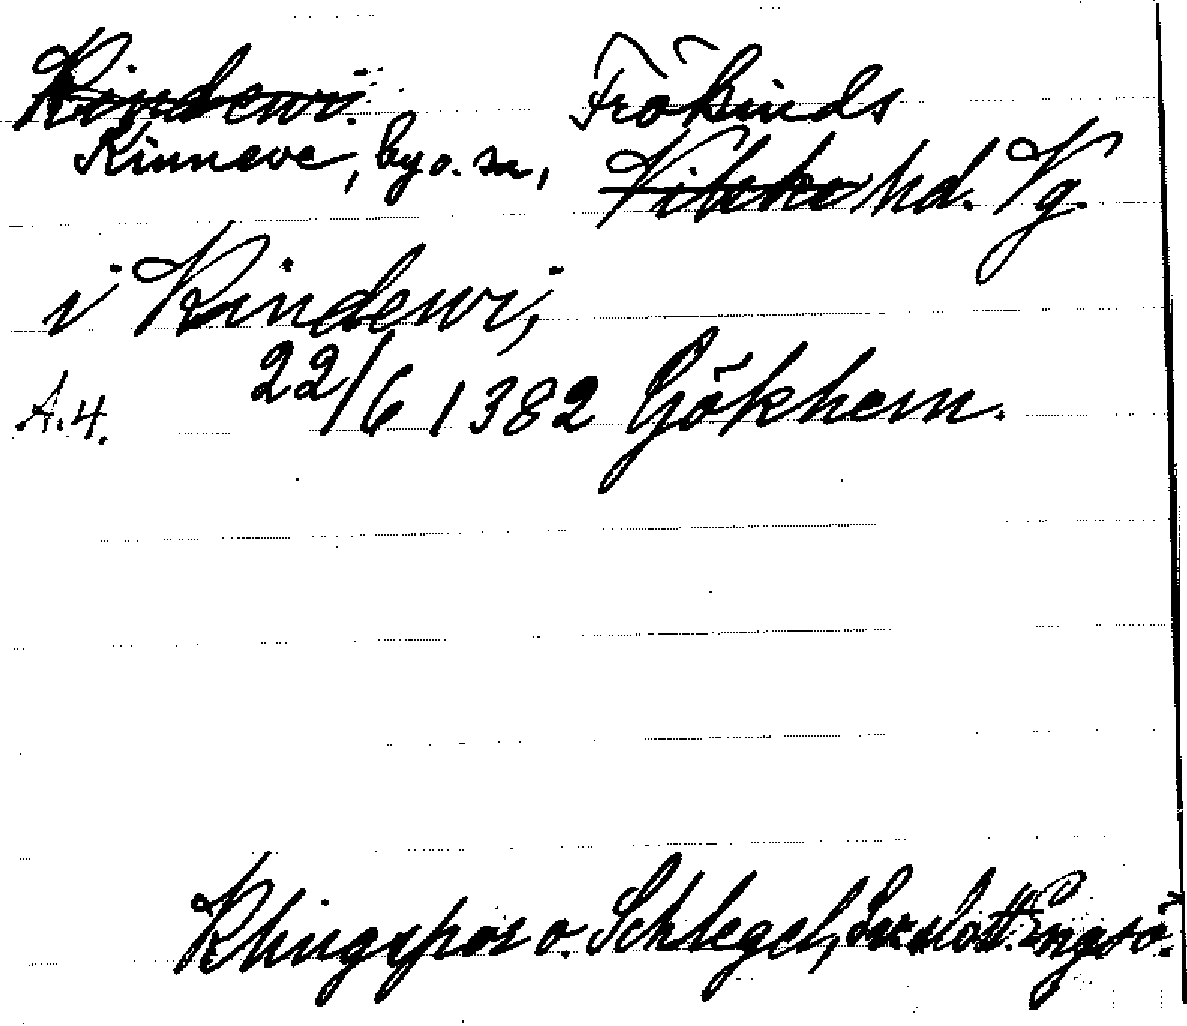 Kindewi. Frökinds
Kinneve, by o. sn, Vilske hd. Vg.
i Kindewi,
A.4. 22/6 1382 Gökhem.
Klingspor o. Schlegel, Engsö.